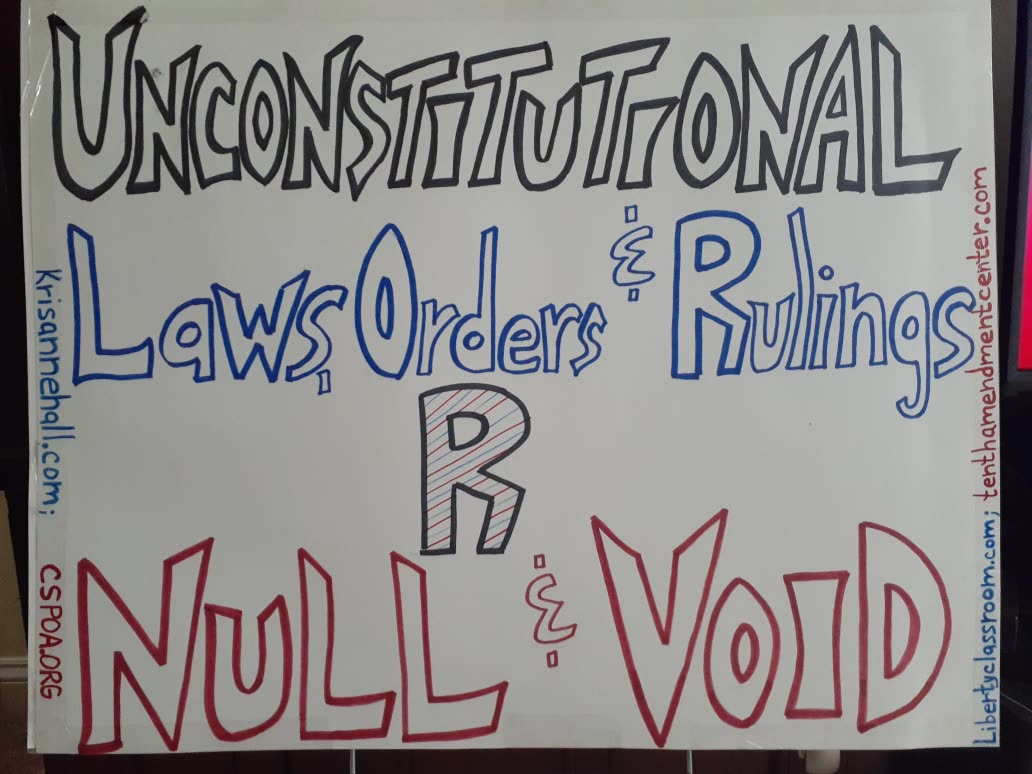 UNCONSTITUTIONAL
Laws, Orders & Rulings
R
NULL & VOID
Krisannehall.com; CSPOA.ORG
Libertyclassroom.com; tenthamendmentcenter.com